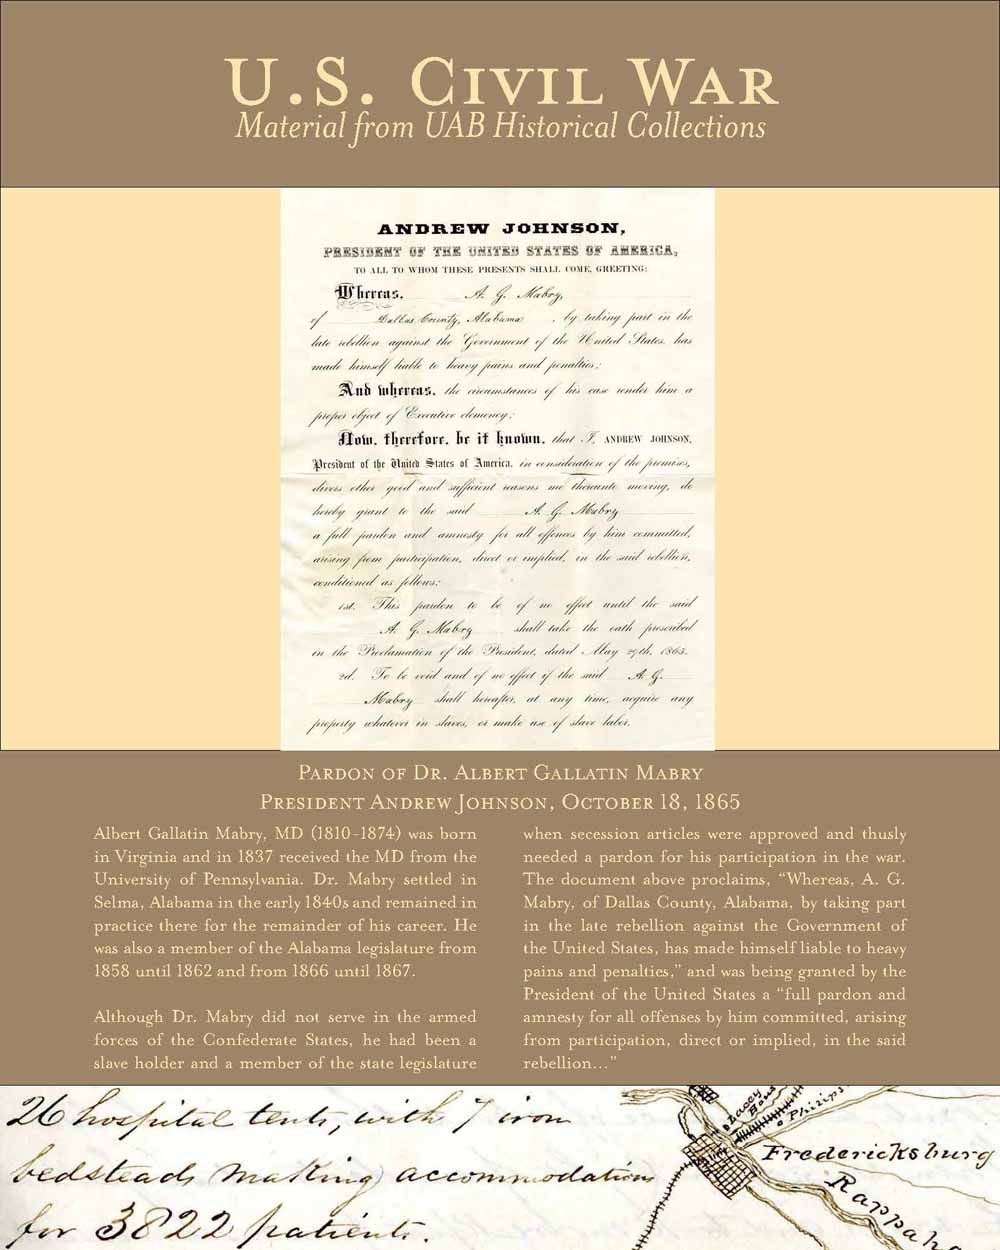 U.S. Civil War
Material from UAB Historical Collections
ANDREW JOHNSON,
PRESIDENT OF THE UNITED STATES OF AMERICA,
TO ALL TO WHOM THESE PRESENTS SHALL COME, GREETING:
Whereas, A. G. Mabry,
of Dallas County, Alabama, by taking part in the
late rebellion against the Government of the United States, has
made himself liable to heavy pains and penalties;
And whereas, the circumstances of his case render him a
proper object of Executive clemency;
Now, therefore, be it known, that I, ANDREW JOHNSON,
President of the United States of America, in consideration of the premises,
divers other good and sufficient reasons me thereunto moving, do
hereby grant to the said A. G. Mabry
a full pardon and amnesty for all offences by him committed,
arising from participation, direct or implied, in the said rebellion,
conditioned as follows:
1st. This pardon to be of no effect until the said
A. G. Mabry shall take the oath prescribed
in the Proclamation of the President, dated May 29th, 1865.
2d. To be void and of no effect if the said A. G.
Mabry shall hereafter, at any time, acquire any
property whatever in slaves, or make use of slave labor.
Pardon of Dr. Albert Gallatin Mabry
President Andrew Johnson, October 18, 1865
Albert Gallatin Mabry, MD (1810-1874) was born
in Virginia and in 1837 received the MD from the
University of Pennsylvania. Dr. Mabry settled in
Selma, Alabama in the early 1840s and remained in
practice there for the remainder of his career. He
was also a member of the Alabama legislature from
1858 until 1862 and from 1866 until 1867.
Although Dr. Mabry did not serve in the armed
forces of the Confederate States, he had been a
slave holder and a member of the state legislature
when secession articles were approved and thusly
needed a pardon for his participation in the war.
The document above proclaims, “Whereas, A. G.
Mabry, of Dallas County, Alabama, by taking part
in the late rebellion against the Government of
the United States, has made himself liable to heavy
pains and penalties,” and was being granted by the
President of the United States a “full pardon and
amnesty for all offenses by him committed, arising
from participation, direct or implied, in the said
rebellion…”
26 hospital tents, with 7 iron
bedsteads making accommodations
for 3822 patients.
Lacey
Philips
Fredericksburg
Rappah